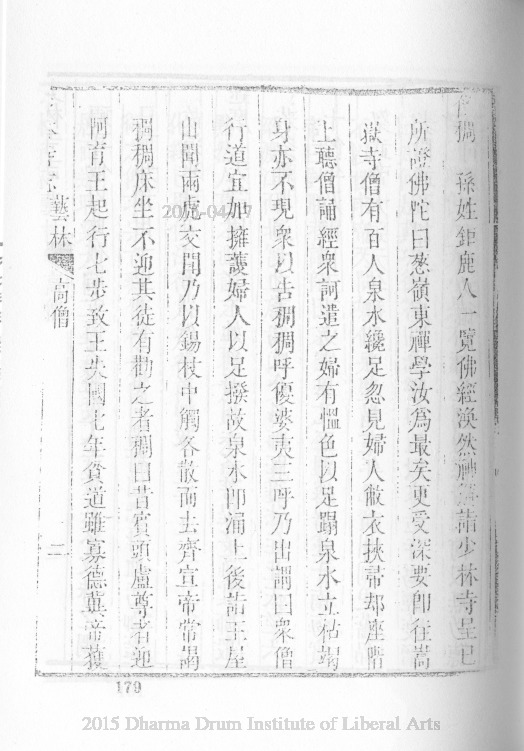 僧稠 孫姓鉅鹿人一覽佛經渙然神解詣少林寺呈已
所證佛陀曰葱嶺東禪學汝爲最矣更受深要卽往嵩
嶽寺僧有百人泉水纔足忽見婦人敝衣挾帚却座階
上聽僧誦經衆訶遣之婦有愠色以足蹋泉水立枯竭
身亦不現衆以告稠稠呼優婆夷三呼乃出謂曰衆僧
行道宜加擁護婦人以足撥故泉水卽涌上後詣王屋
山聞兩虎交鬭乃以錫杖中觸各散而去齊宣帝常謁
稠稠床坐不迎其徒有勸之者稠曰昔賓頭盧尊者迎
阿育王起行七步致王失國七年貧道雖寡德冀帝獲
藝林 高僧 二
179
2015 Dharma Drum Institute of Liberal Arts